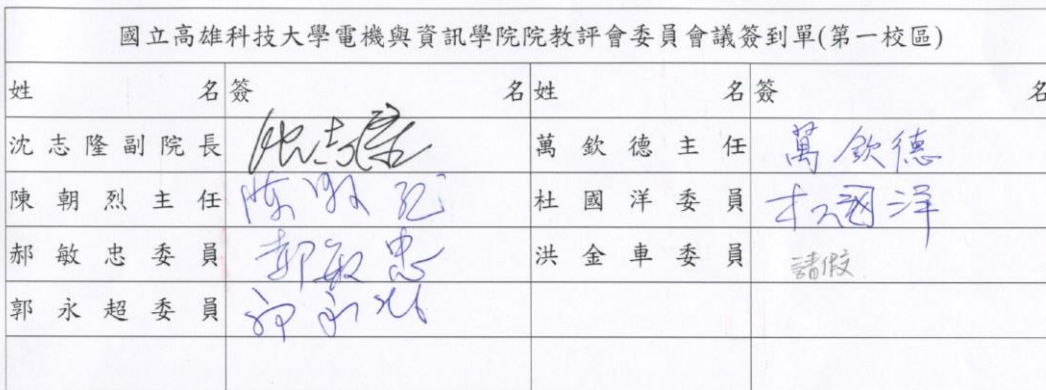 國立高雄科技大學電機與資訊學院院教評會委員會議簽到單(第一校區)
姓名 簽名 姓名 簽名
沈志隆副院長 沈志隆 萬欽德主任 萬欽德
陳朝烈主任 陳朝烈 杜國洋委員 杜國洋
郝敏忠委員 郝敏忠 洪金車委員 請假
郭永超委員 郭永超